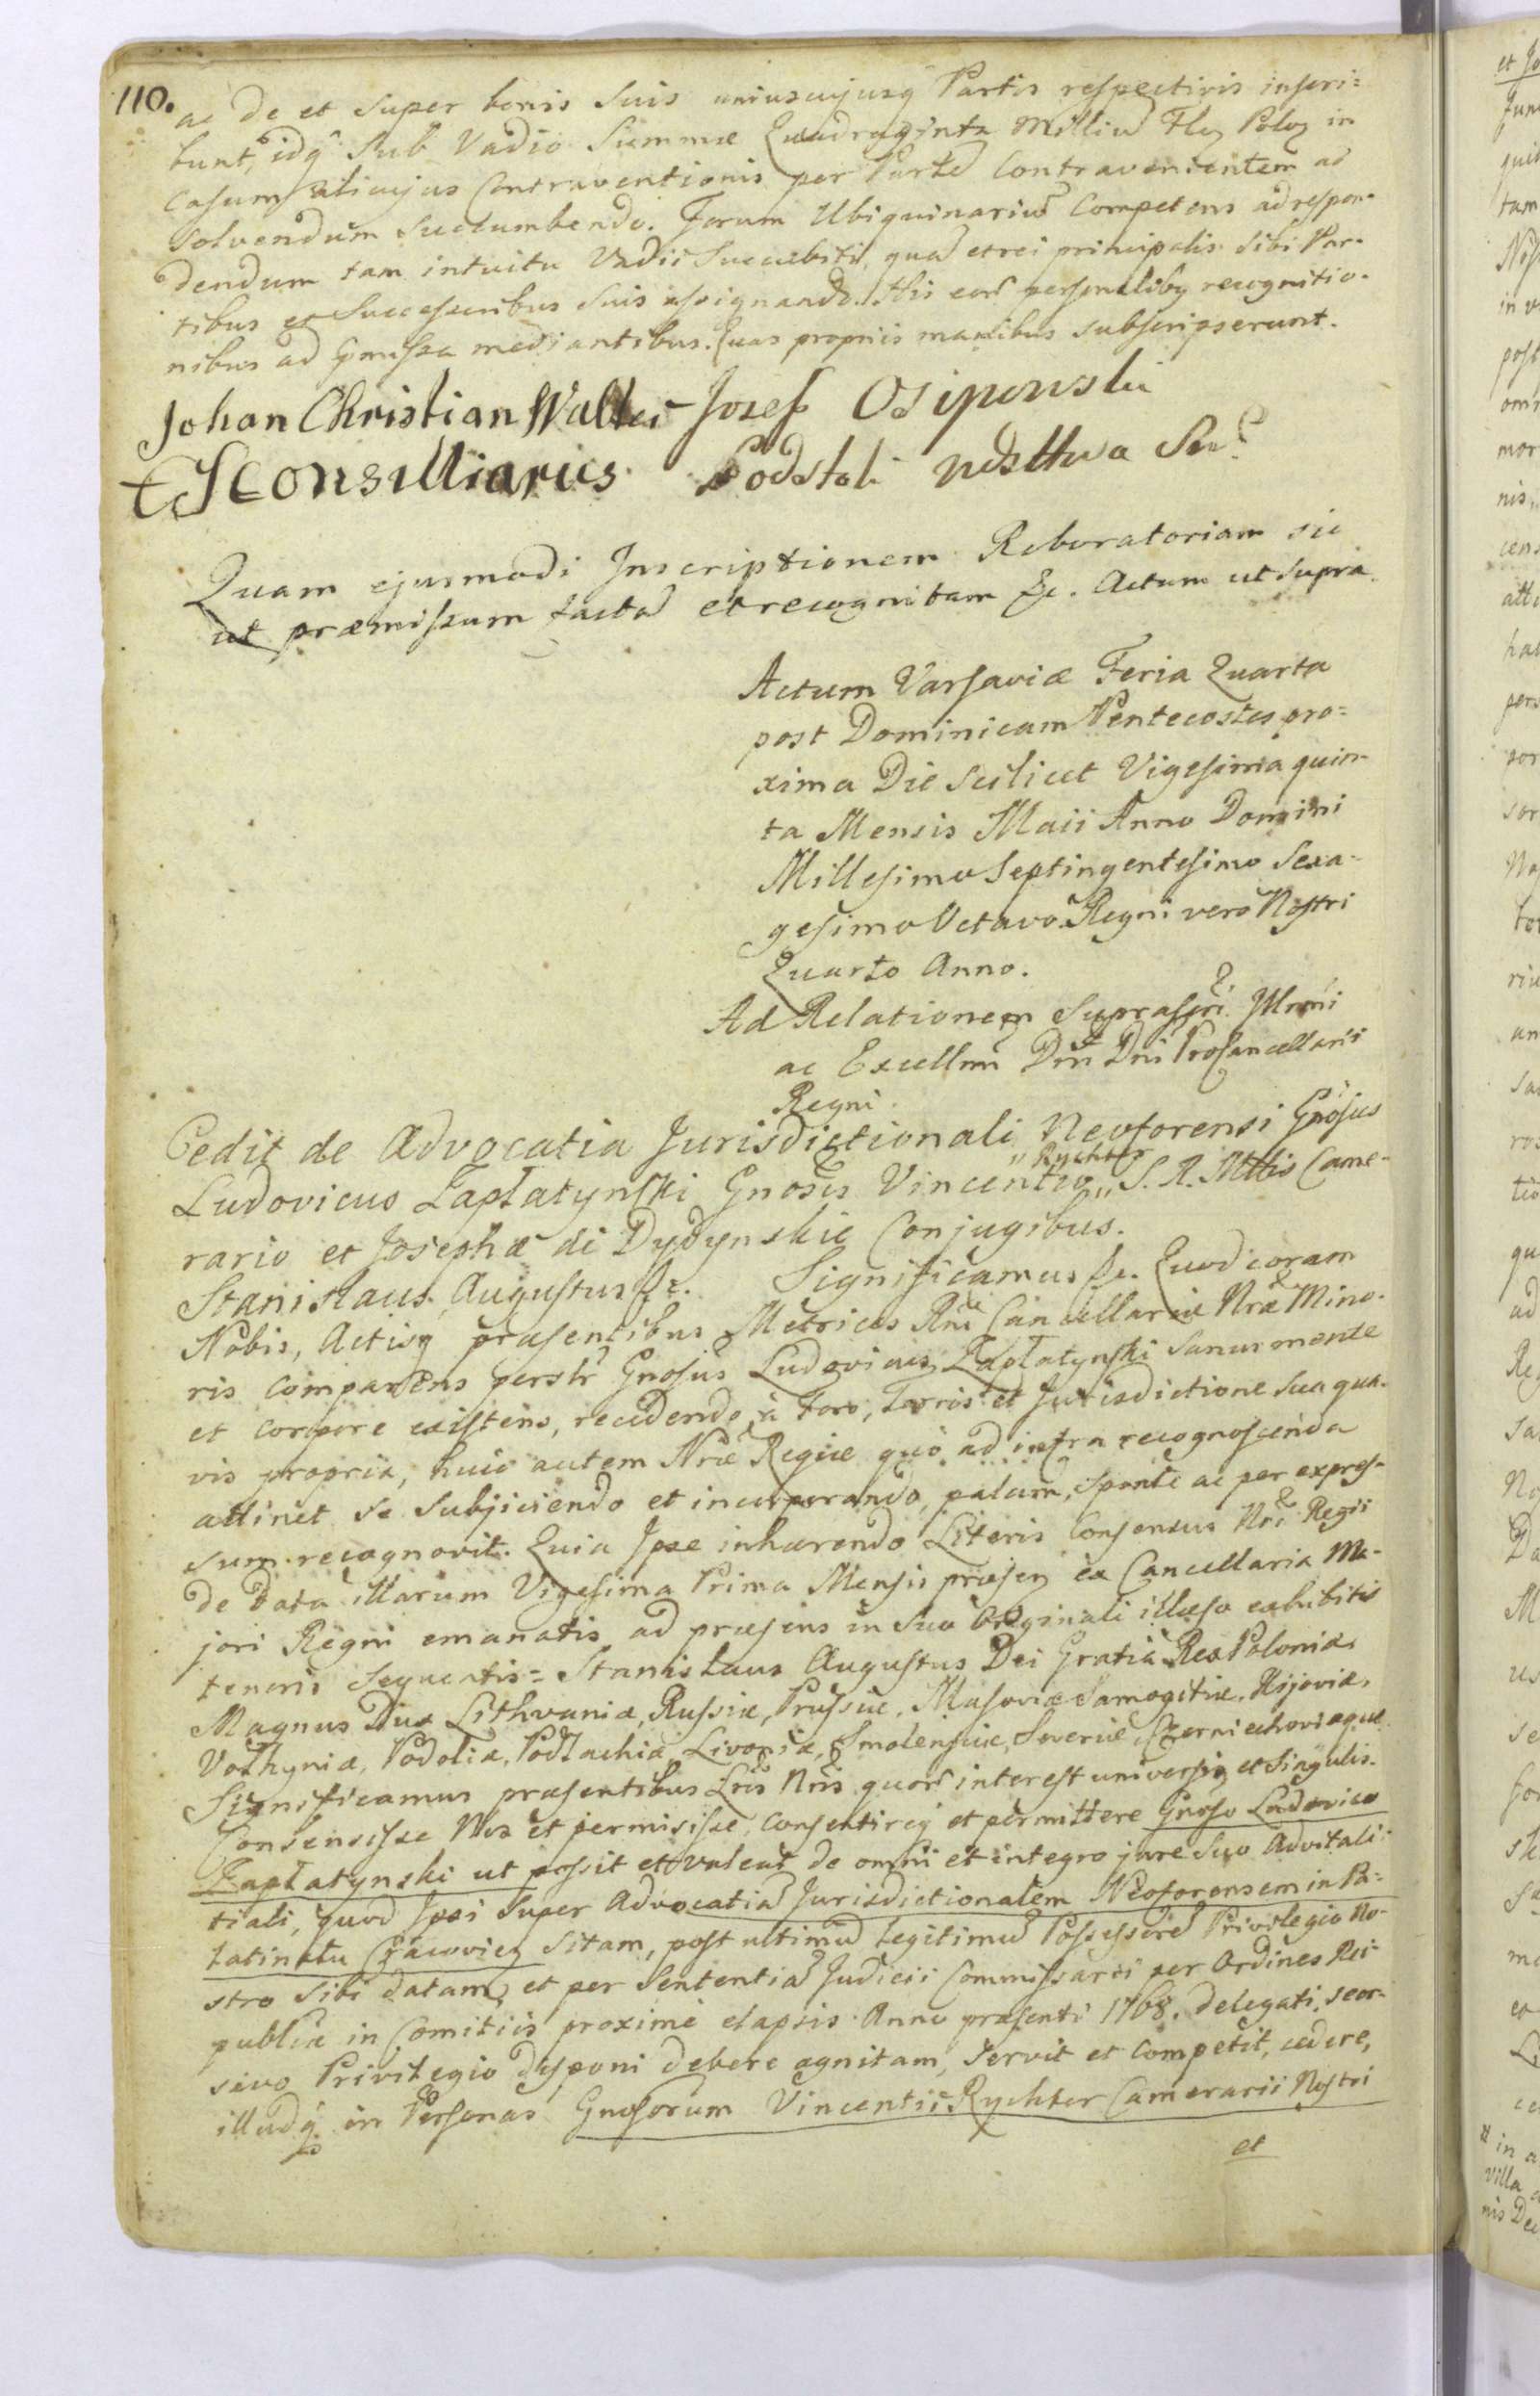 110.
ac de et super bonis suis uniuscujusq Partis respectivis inscri=
bunt, idq sub Vadio Summæ Quadraginta Milliu Flo Polo in
Casum alicujus Contraventionis per Parte Contravenientem ad
solvendum succumbendo. Forum Ubiquinariu Competens ad respon-
dendum tam intuitu Vadii Succubiti, qua et rei principalis sibi Par-
tibus et Successoribus suis assignando. His ear personalibq recognitio-
nibus ad præmissa mediantibus. Quas propriis manibus subscripserunt.
Johan Christian Walter Josef Osipowski
Consilliarius Podstoli
Quam ejusmodi Inscriptionem Roboratoriam sic
ut præmissum facta et recognitam &c. Actum ut supra.
Actum Varsaviæ Feria Quarta
post Dominicam Pentecostes pro=
xima Die scilicet Vigesima quin-
ta Mensis Maii Anno Domini
Millesimo Septingentesimo Sexa-
gesimo Octavo Regni vero Nostri
Quarto Anno.
Ad Relationem suprascri Illrmi
ac Excellmi Dni Dni Procancellarii
Regni.
Cedit de Advocatia Jurisdictionali Neoforensi Gnosus
Ludovicus Zapłatyński Gnosis Vincentio „Rychter„ S. R. Mttis Came-
rario et Josephæ de Dydynskie Conjugibus.
Stanislaus Augustus &c. Significamus &c. Quod coram
Nobis, Actisq præsentibus Metrices Rni Cancellariæ Nræ Mino-
ris comparens perslr Gnosus Ludovicus Zapłatynski sanus mente
et corpore existens, recedendo à Foro, Terris et Jurisdictione sua qua-
vis propria, huic autem Nræ Regiæ quò ad infra recognoscenda
attinet se subjiciendo et incorporando, palam, sponte ac per expres-
sum recognovit. Quia Ipse inhærendo Literis Consensus Nri Regii
de data illarum Vigesima Prima Mensis præsen ex Cancellaria Ma-
jori Regni emanatis ad præsens in suo Originali illæso exhibitis
tenoris sequentis= Stanislaus Augustus Dei Gratia Rex Poloniæ,
Magnus Dux Lithvaniæ, Russiæ, Prussiæ, Masoviæ Samogitiæ, Kijoviæ,
Vołhyniæ, Podoliæ, Podlachiæ, Livoniæ, Smolensciæ, Severiæ, Czerniechoviæque
Significamus præsentibus Lris Nris quor interest universis et singulis.
Consensisse Nos et permisisse, consentireq et permittere Gnoso Ludovico
Zapłatynski ut possit et valeat de omni et integro jure suo Advitali-
tiali, quod Ipsi super Advocatia Jurisdictionalem Neoforensem in Pa-
latinatu Cracovien sitam, post ultimu legitimu Possessore Privilegio No-
stro sibi datam, et per Sententia Judicii Commissarii per Ordines Rei-
publicæ in Comitiis proximè elapsis Anno præsenti 1768. delegati, seor-
sivo Privilegio disponi debere agnitam, servit et competit, cedere,
illudq in Personas Gnosorum Vincentii Rychter Camerarii Nostri
et